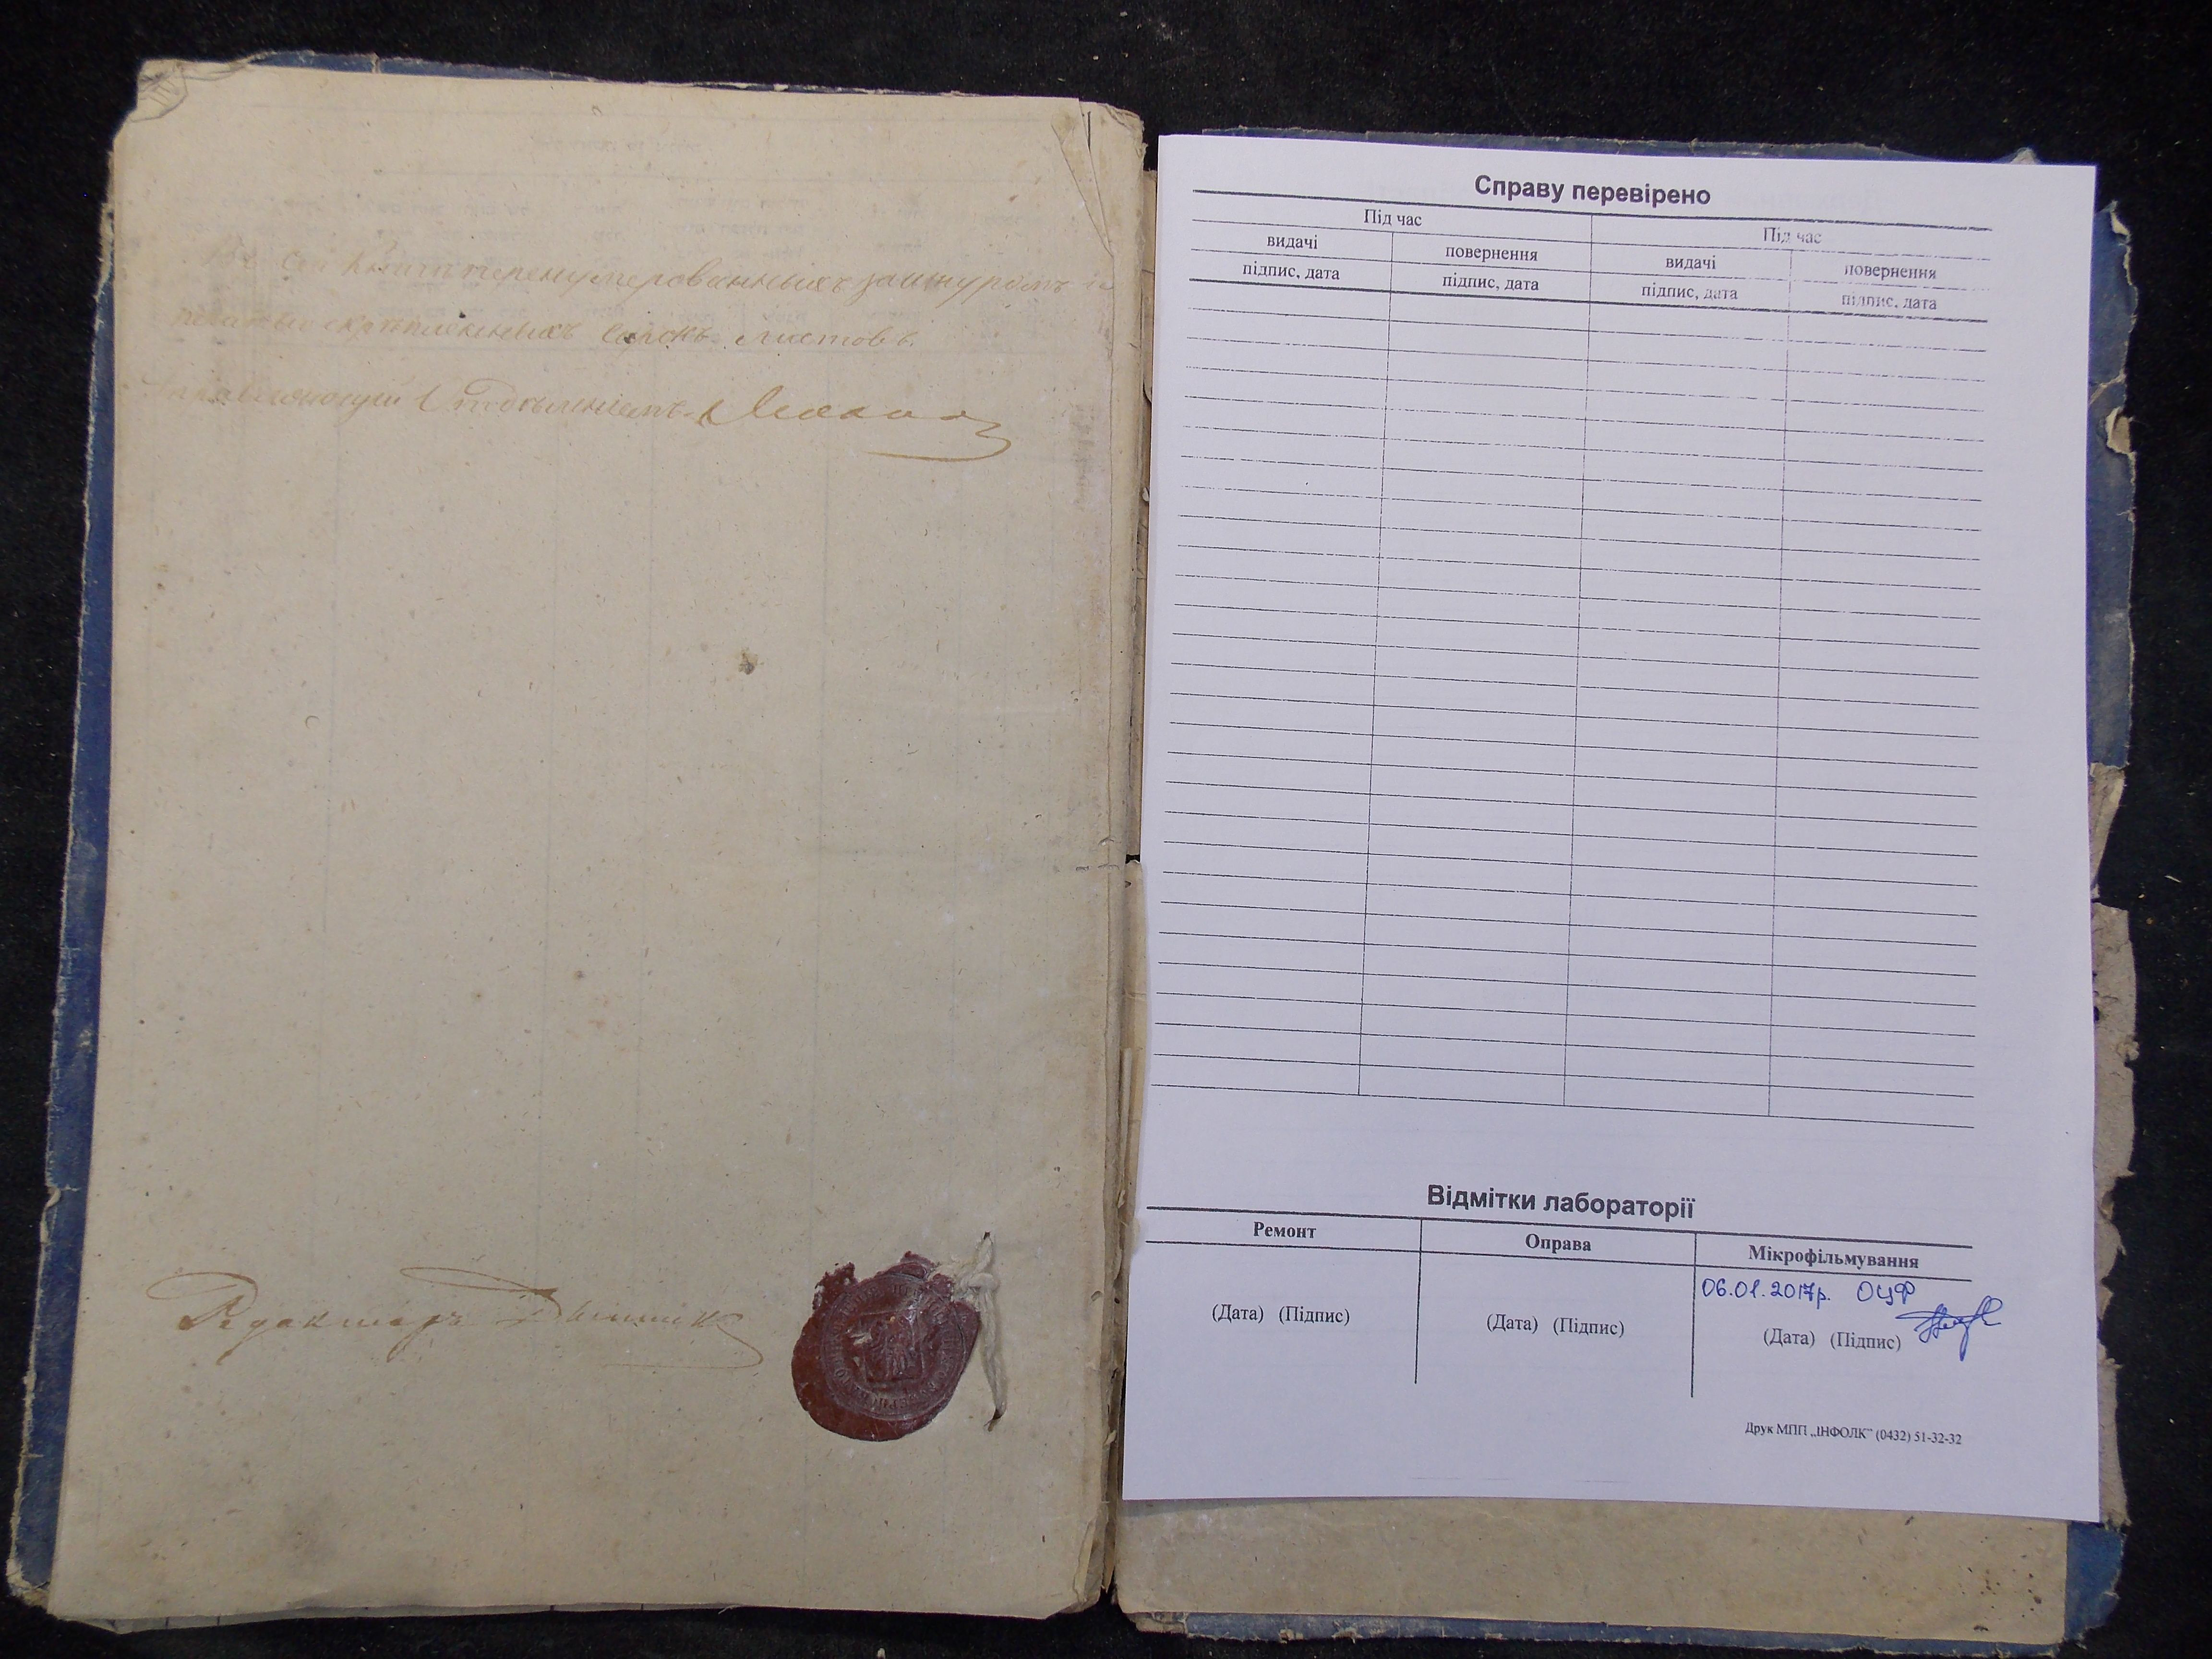 Сей Книги перенумерованныхъ за шнуромъ и
печатью скрѣпленныхъ сорокъ листовъ.
Управляющій Отдѣленіемъ
Редакторъ
Справу перевірено
Під час Під час
видачі повернення видачі повернення
підпис, дата підпис, дата підпис, дата підпис, дата
Відмітки лабораторії
Ремонт Оправа Мікрофільмування
06.01.2017р. ОЦФ
(Дата) (Підпис) (Дата) (Підпис) (Дата) (Підпис)
Друк МПП „ІНФОЛК” (0432) 51-32-32